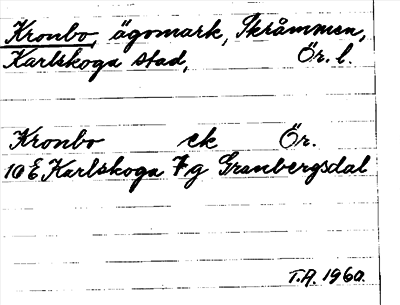 Kronbo, ägomark, Skråmmen,
Karlskoga stad, Ör. l.
Kronbo ek Ör.
10 E Karlskoga 7 g Granbergsdal
T.A. 1960